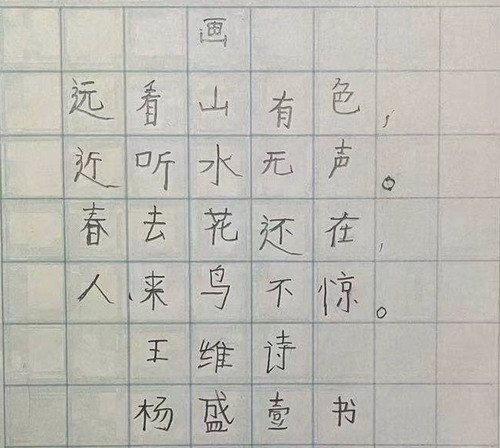 画
远看山有色，
近听水无声。
春去花还在，
人来鸟不惊。
王维诗
杨盛壹书